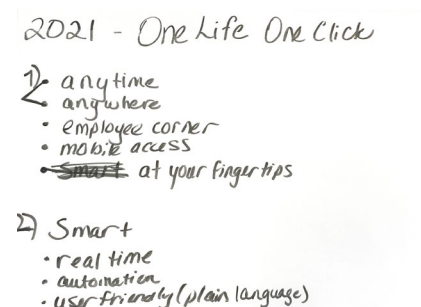 2021 - One Life One Click
1) • anytime
• anywhere
• employee corner
• mobile access
• Smart at your fingertips
2) Smart
• real time
• automation
• user friendly (plain language)